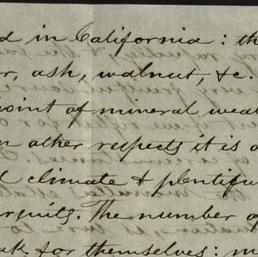 d in California: th
r, ash, walnut, &c.
point of mineral weal
n other respects it is a
d climate & plentifu
rpuits. The number o
ak for themselves: m